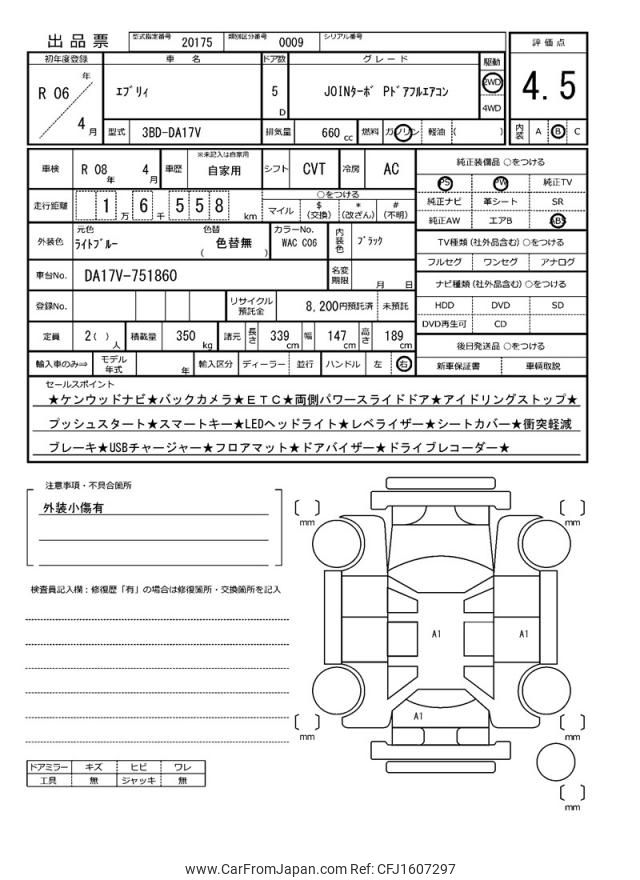 出品票 型式指定番号 20175 類別区分番号 0009 シリアル番号
評価点
初年度登録 車名 ドア数 グレード 駆動
R 06 年 4 月
エブリィ 5 D JOINターボ Pドアフルエアコン 2WD 4WD
4.5
型式 3BD-DA17V 排気量 660 cc 燃料 ガソリン 軽油 ( )
内装 A B C
車検 R 08 年 4 月 車歴 ※未記入は自家用 自家用 シフト CVT 冷房 AC
純正装備品 ○をつける
PS PW 純正TV
純正ナビ 革シート SR
純正AW エアB ABS
走行距離 1 万 6 千 5 5 8 km
○をつける
マイル $ (交換) * (改ざん) # (不明)
外装色 元色 ライトブルー 色替 ( 色替無 ) カラーNo. WAC C06 内装色 ブラック
TV種類 (社外品含む) ○をつける
フルセグ ワンセグ アナログ
車台No. DA17V-751860 名変期限 月 日
ナビ種類 (社外品含む) ○をつける
HDD DVD SD
DVD再生可 CD
登録No. リサイクル預託金 8,200円預託済 未預託
定員 2( ) 人 積載量 350 kg 諸元 長さ 339 cm 幅 147 cm 高さ 189 cm
後日発送品 ○をつける
新車保証書 車輌取説
輸入車のみ⇒ モデル年式 年 輸入区分 ディーラー 並行 ハンドル 左 右
セールスポイント
★ケンウッドナビ★バックカメラ★ETC★両側パワースライドドア★アイドリングストップ★
プッシュスタート★スマートキー★LEDヘッドライト★レベライザー★シートカバー★衝突軽減
ブレーキ★USBチャージャー★フロアマット★ドアバイザー★ドライブレコーダー★
注意事項・不具合箇所
外装小傷有
検査員記入欄：修復歴「有」の場合は修復箇所・交換箇所を記入
〔 〕 mm
〔 〕 mm
A1 A1
A1
〔 〕 mm
〔 〕 mm
〔 〕 mm
ドアミラー キズ ヒビ ワレ
工具 無 ジャッキ 無
www.CarFromJapan.com Ref: CFJ1607297